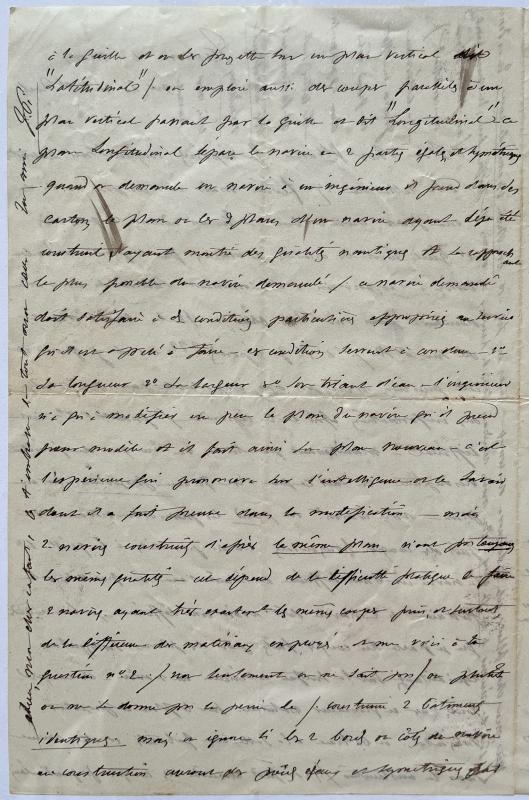 à la quille et on les projette sur un plan vertical dit
"Latitudinal" / on emploie aussi des coupes parallèles à un
plan vertical passant par la quille et dit "Longitudinal" ce
plan longitudinal sépare le navire en 2 parties égales et symétriques
quand on demande un navire à un ingénieur il prend dans ses
cartons le plan ou les plans d'un navire ayant déjà été
construit, ayant montré des qualités nautiques et se rapprochant
le plus possible du navire demandé / ce navire demandé
doit satisfaire à des conditions particulières appropriées au service
qu'il est appelé à faire - ces conditions servent à 1°
sa longueur 2° sa largeur 3° son tirant d'eau - l'ingénieur
n'a qu'à modifier un peu le plan du navire qu'il prend
pour modèle et il fait ainsi un plan nouveau - c'est
l'expérience qui prononcera sur l'intelligence et le savoir
dont il a fait preuve dans la modification - mais
2 navires construits d'après le même plan n'ont pas toujours
les mêmes qualités - cela dépend de la difficulté pratique de faire
2 navires ayant très exactement les mêmes coupes puis et surtout
de la différence des matériaux employés. et me voici à la
question n° 2 / non seulement on ne sait pas / ou plutôt
on ne se donne pas la peine de / construire 2 bâtiments
identiques mais on ignore si les 2 bords ou côtés du navire
en construction auront des poids égaux et symétriques
adieu, mon cher enfant, je t'embrasse de tout mon cœur